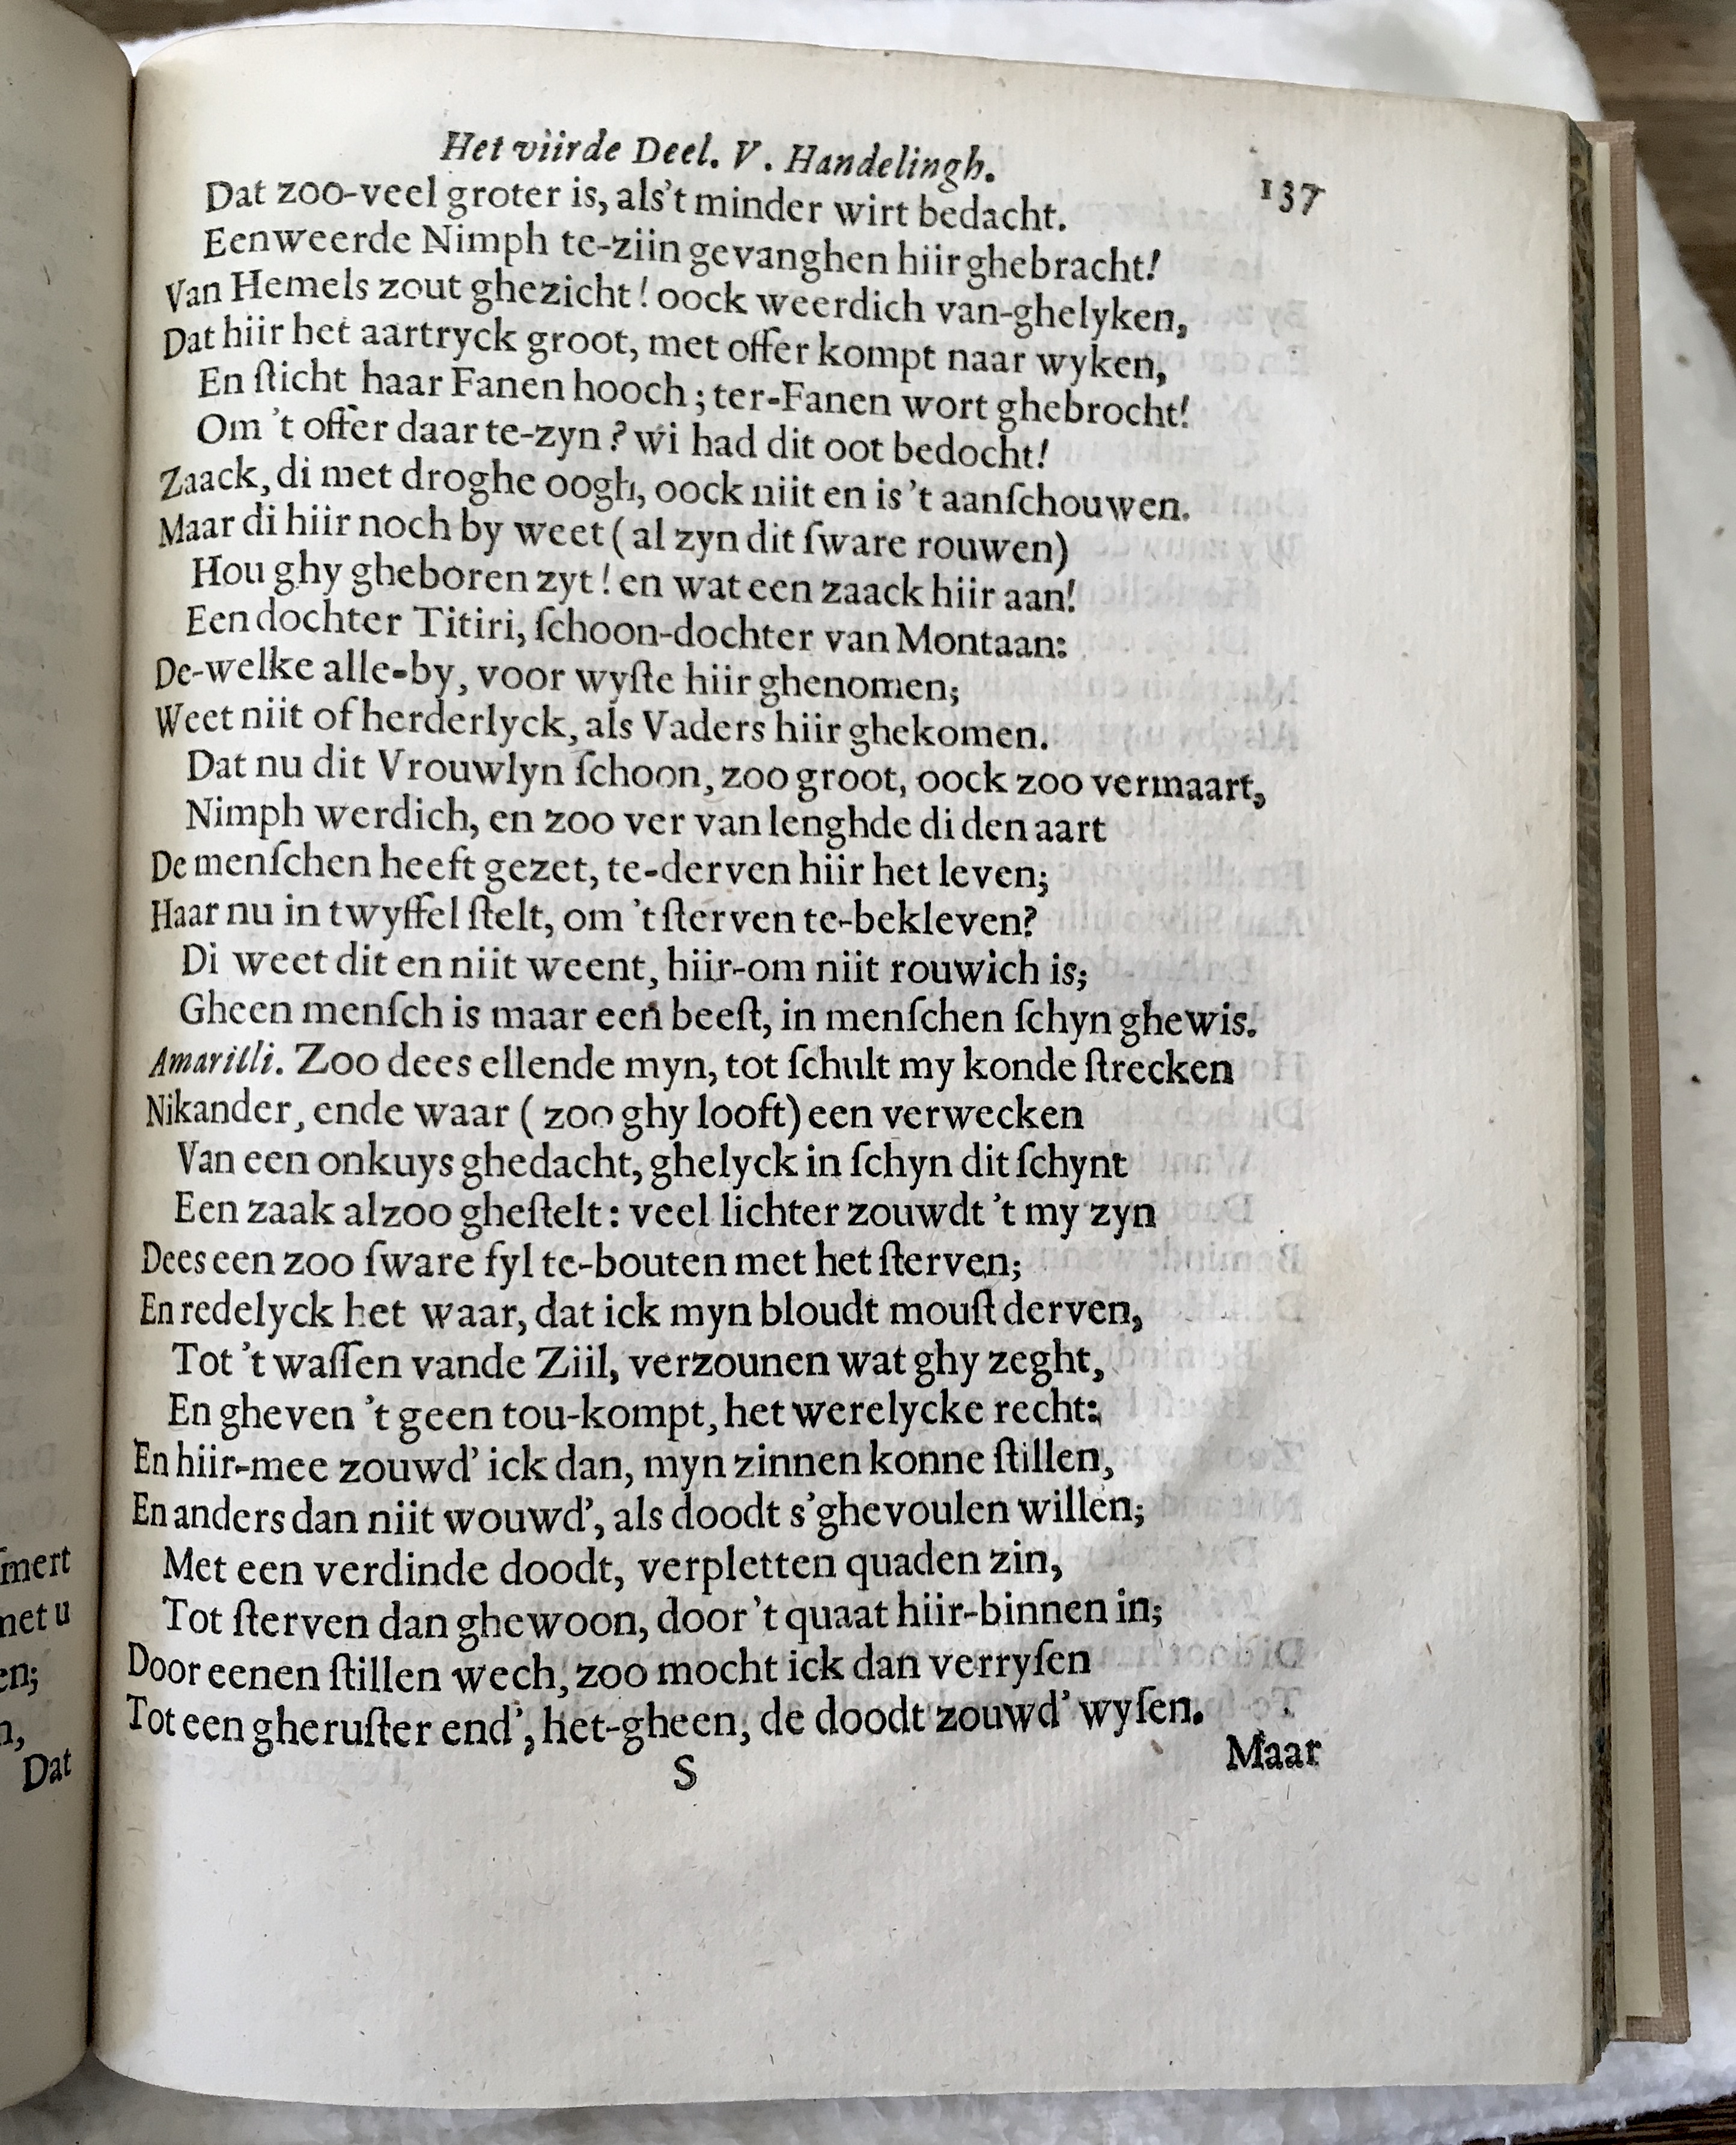 mert
net u
en;
n,
Dat
Het viirde Deel. V. Handelingh.
137
Dat zoo-veel groter is, als't minder wirt bedacht.
Eenweerde Nimph te-ziin gevanghen hiir ghebracht!
Van Hemels zout ghezicht! oock weerdich van-ghelyken,
Dat hiir het aartryck groot, met offer kompt naar wyken,
En ſticht haar Fanen hooch; ter-Fanen wort ghebrocht!
Om 't offer daar te-zyn? wi had dit oot bedocht!
Zaack, di met droghe oogh, oock niit en is 't aanſchouwen.
Maar di hiir noch by weet (al zyn dit ſware rouwen)
Hou ghy gheboren zyt! en wat een zaack hiir aan!
Een dochter Titiri, ſchoon-dochter van Montaan:
De-welke alle-by, voor wyſte hiir ghenomen;
Weet niit of herderlyck, als Vaders hiir ghekomen.
Dat nu dit Vrouwlyn ſchoon, zoo groot, oock zoo vermaart,
Nimph werdich, en zoo ver van lenghde di den aart
De menſchen heeft gezet, te-derven hiir het leven;
Haar nu in twyffel ſtelt, om 't ſterven te-bekleven?
Di weet dit en niit weent, hiir-om niit rouwich is;
Gheen menſch is maar een beeſt, in menſchen ſchyn ghewis.
Amarilli. Zoo dees ellende myn, tot ſchult my konde ſtrecken
Nikander, ende waar (zoo ghy looft) een verwecken
Van een onkuys ghedacht, ghelyck in ſchyn dit ſchynt
Een zaak alzoo gheſtelt: veel lichter zouwdt 't my zyn
Dees een zoo ſware fyl te-bouten met het ſterven;
En redelyck het waar, dat ick myn bloudt mouſt derven,
Tot 't waſſen vande Ziil, verzounen wat ghy zeght,
En gheven 't geen tou-kompt, het werelycke recht:
En hiir-mee zouwd' ick dan, myn zinnen konne ſtillen,
En anders dan niit wouwd', als doodt s'ghevoulen willen;
Met een verdinde doodt, verpletten quaden zin,
Tot ſterven dan ghewoon, door 't quaat hiir-binnen in;
Door eenen ſtillen wech, zoo mocht ick dan verryſen
Tot een gheruſter end', het-gheen, de doodt zouwd' wyſen.
S
Maar